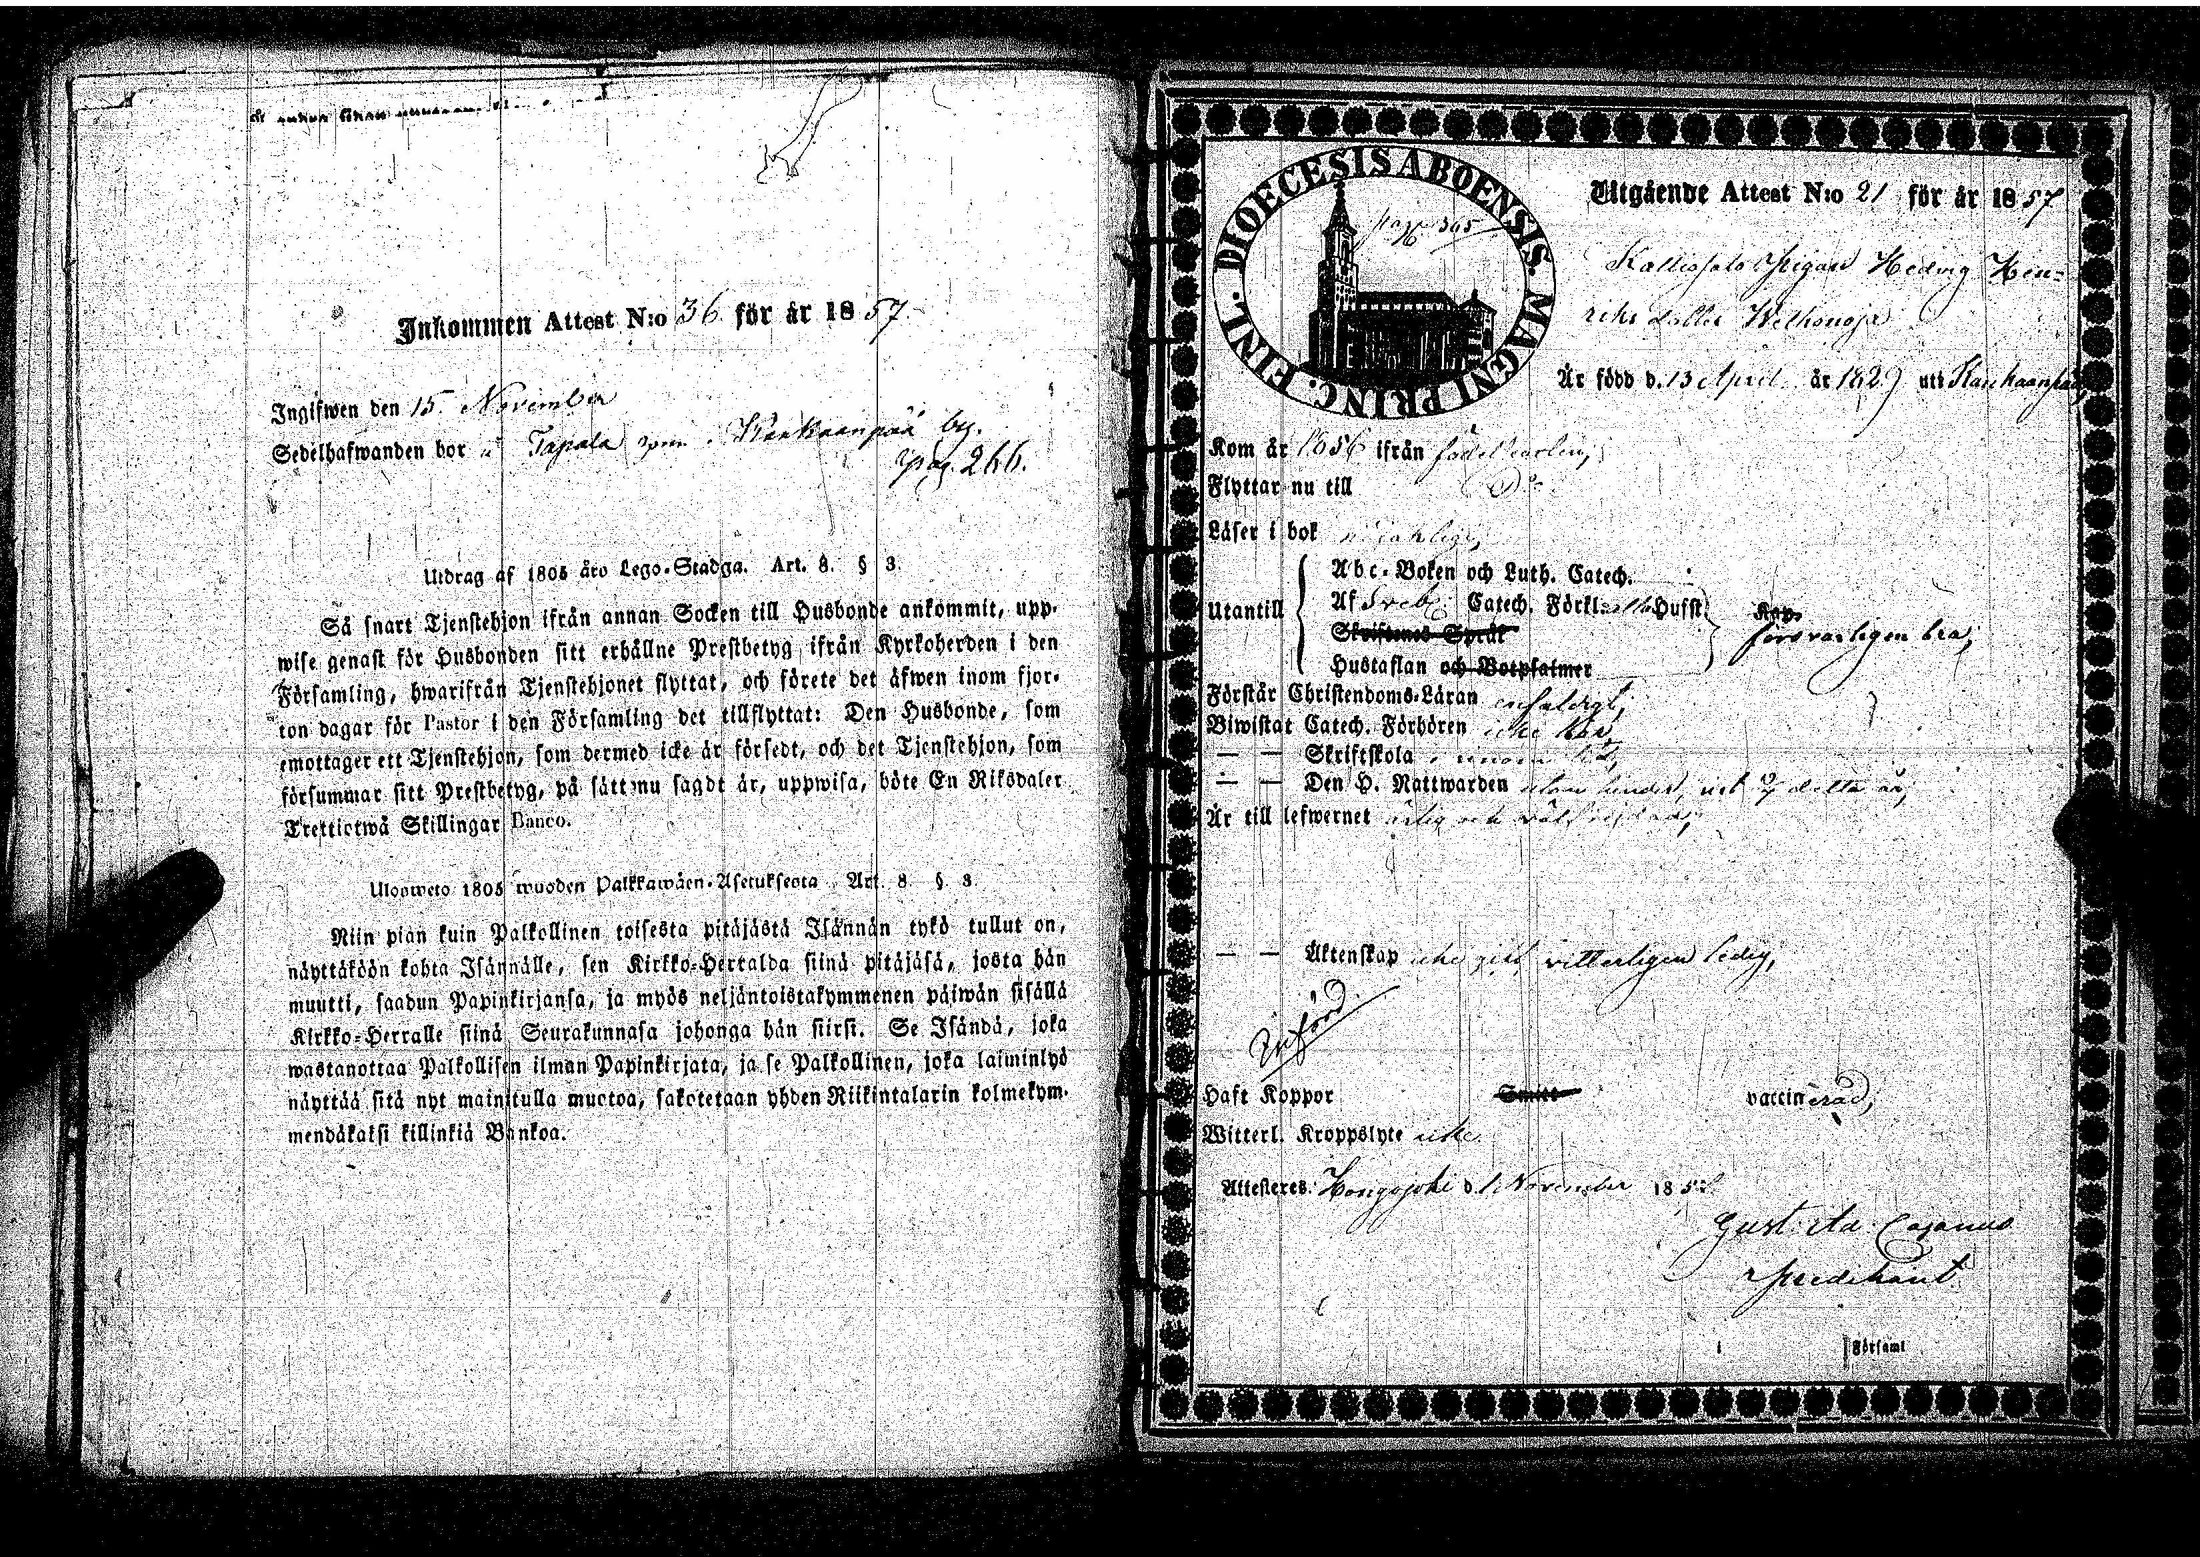 Inkommen Attest N:o 36 för år 1857
Ingifwen den 15 November
Sedelhafwanden bor i Tapala Kankaanpää by.
pag. 266.
Utdrag af 1805 års Lego-Stadga. Art. 8. § 3.
Så snart Tjenstehjon ifrån annan Socken till Husbonde ankommit, upp-
wise genast för Husbonden sitt erhållne Prestbetyg ifrån Kyrkoherden i den
Församling, hwarifrån Tjenstehjonet flyttat, och förete det äfwen inom fjor-
ton dagar för Pastor i den Församling det tillflyttat: Den Husbonde, som
emottager ett Tjenstehjon, som dermed icke är försedt, och det Tjenstehjon, som
försummar sitt Prestbetyg, på sätt nu sagdt är, uppwisa, böte En Riksdaler
Trettiotwå Skillingar Banco.
Ulosweto 1805 wuoden Palkkawäen-Asetuksesta Art. 8 § 3
Niin pian kuin Palkollinen toisesta pitäjästä Isännän tykö tullut on,
näyttäköön kohta Isännälle, sen Kirkko-Herralda siinä pitäjäsä, josta hän
muutti, saadun Papinkirjansa, ja myös neljäntoistakymmenen päiwän sisällä
Kirkko-Herralle siinä Seurakunnasa johonga hän siirsi. Se Isändä, joka
wastanottaa Palkollisen ilman Papinkirjata, ja se Palkollinen, joka laiminlyö
näyttää sitä nyt mainitulla muotoa, sakotetaan yhden Riikintalarin kolmekym-
mendäkaksi killinkiä Bankoa.
DIOECESIS ABOENSIS. MAGNI PRINC. FINL.
pag 365
Utgående Attest N:o 21 för år 1857
Pigan Hedvig Hen-
riks dotter Welhonoja
Är född d. 13 April år 1829 uti Kankaanpää,
Kom år 1856 ifrån födelseorten,
Flyttar nu till D:o
Läser i bok
Utantill
Abc-Boken och Luth. Catech.
Af Sveb. Catech. Förkl. Husst
Skriftenes Språk
Hustaflan och Botpsalmer
försvarligen bra,
Förstår Christendoms-Läran enfaldigt,
Biwistat Catech. Förhören icke här,
— — Skriftskola
— — Den H. Nattwarden utan hinder, detta år,
Är till lefwernet ärlig och
— — Äktenskap icke gift, vitterligen ledig,
Införd
Haft Koppor Smitt vaccinerad,
Witterl. Kroppslyte icke
Attesteres Hongojoki d. 1 November 185
Gust. Ad. Cajanus
Predikant
i Församl